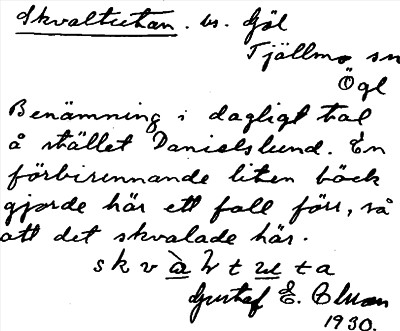 Skvaltutan. bs. Göl
Tjällmo sn
Ögl
Benämning i dagligt tal
å stället Danielslund. En
förbirinnande liten bäck
gjorde här ett fall förr, så
att det skvalade här.
s k v a l t u t a
Gustaf E.
1930.